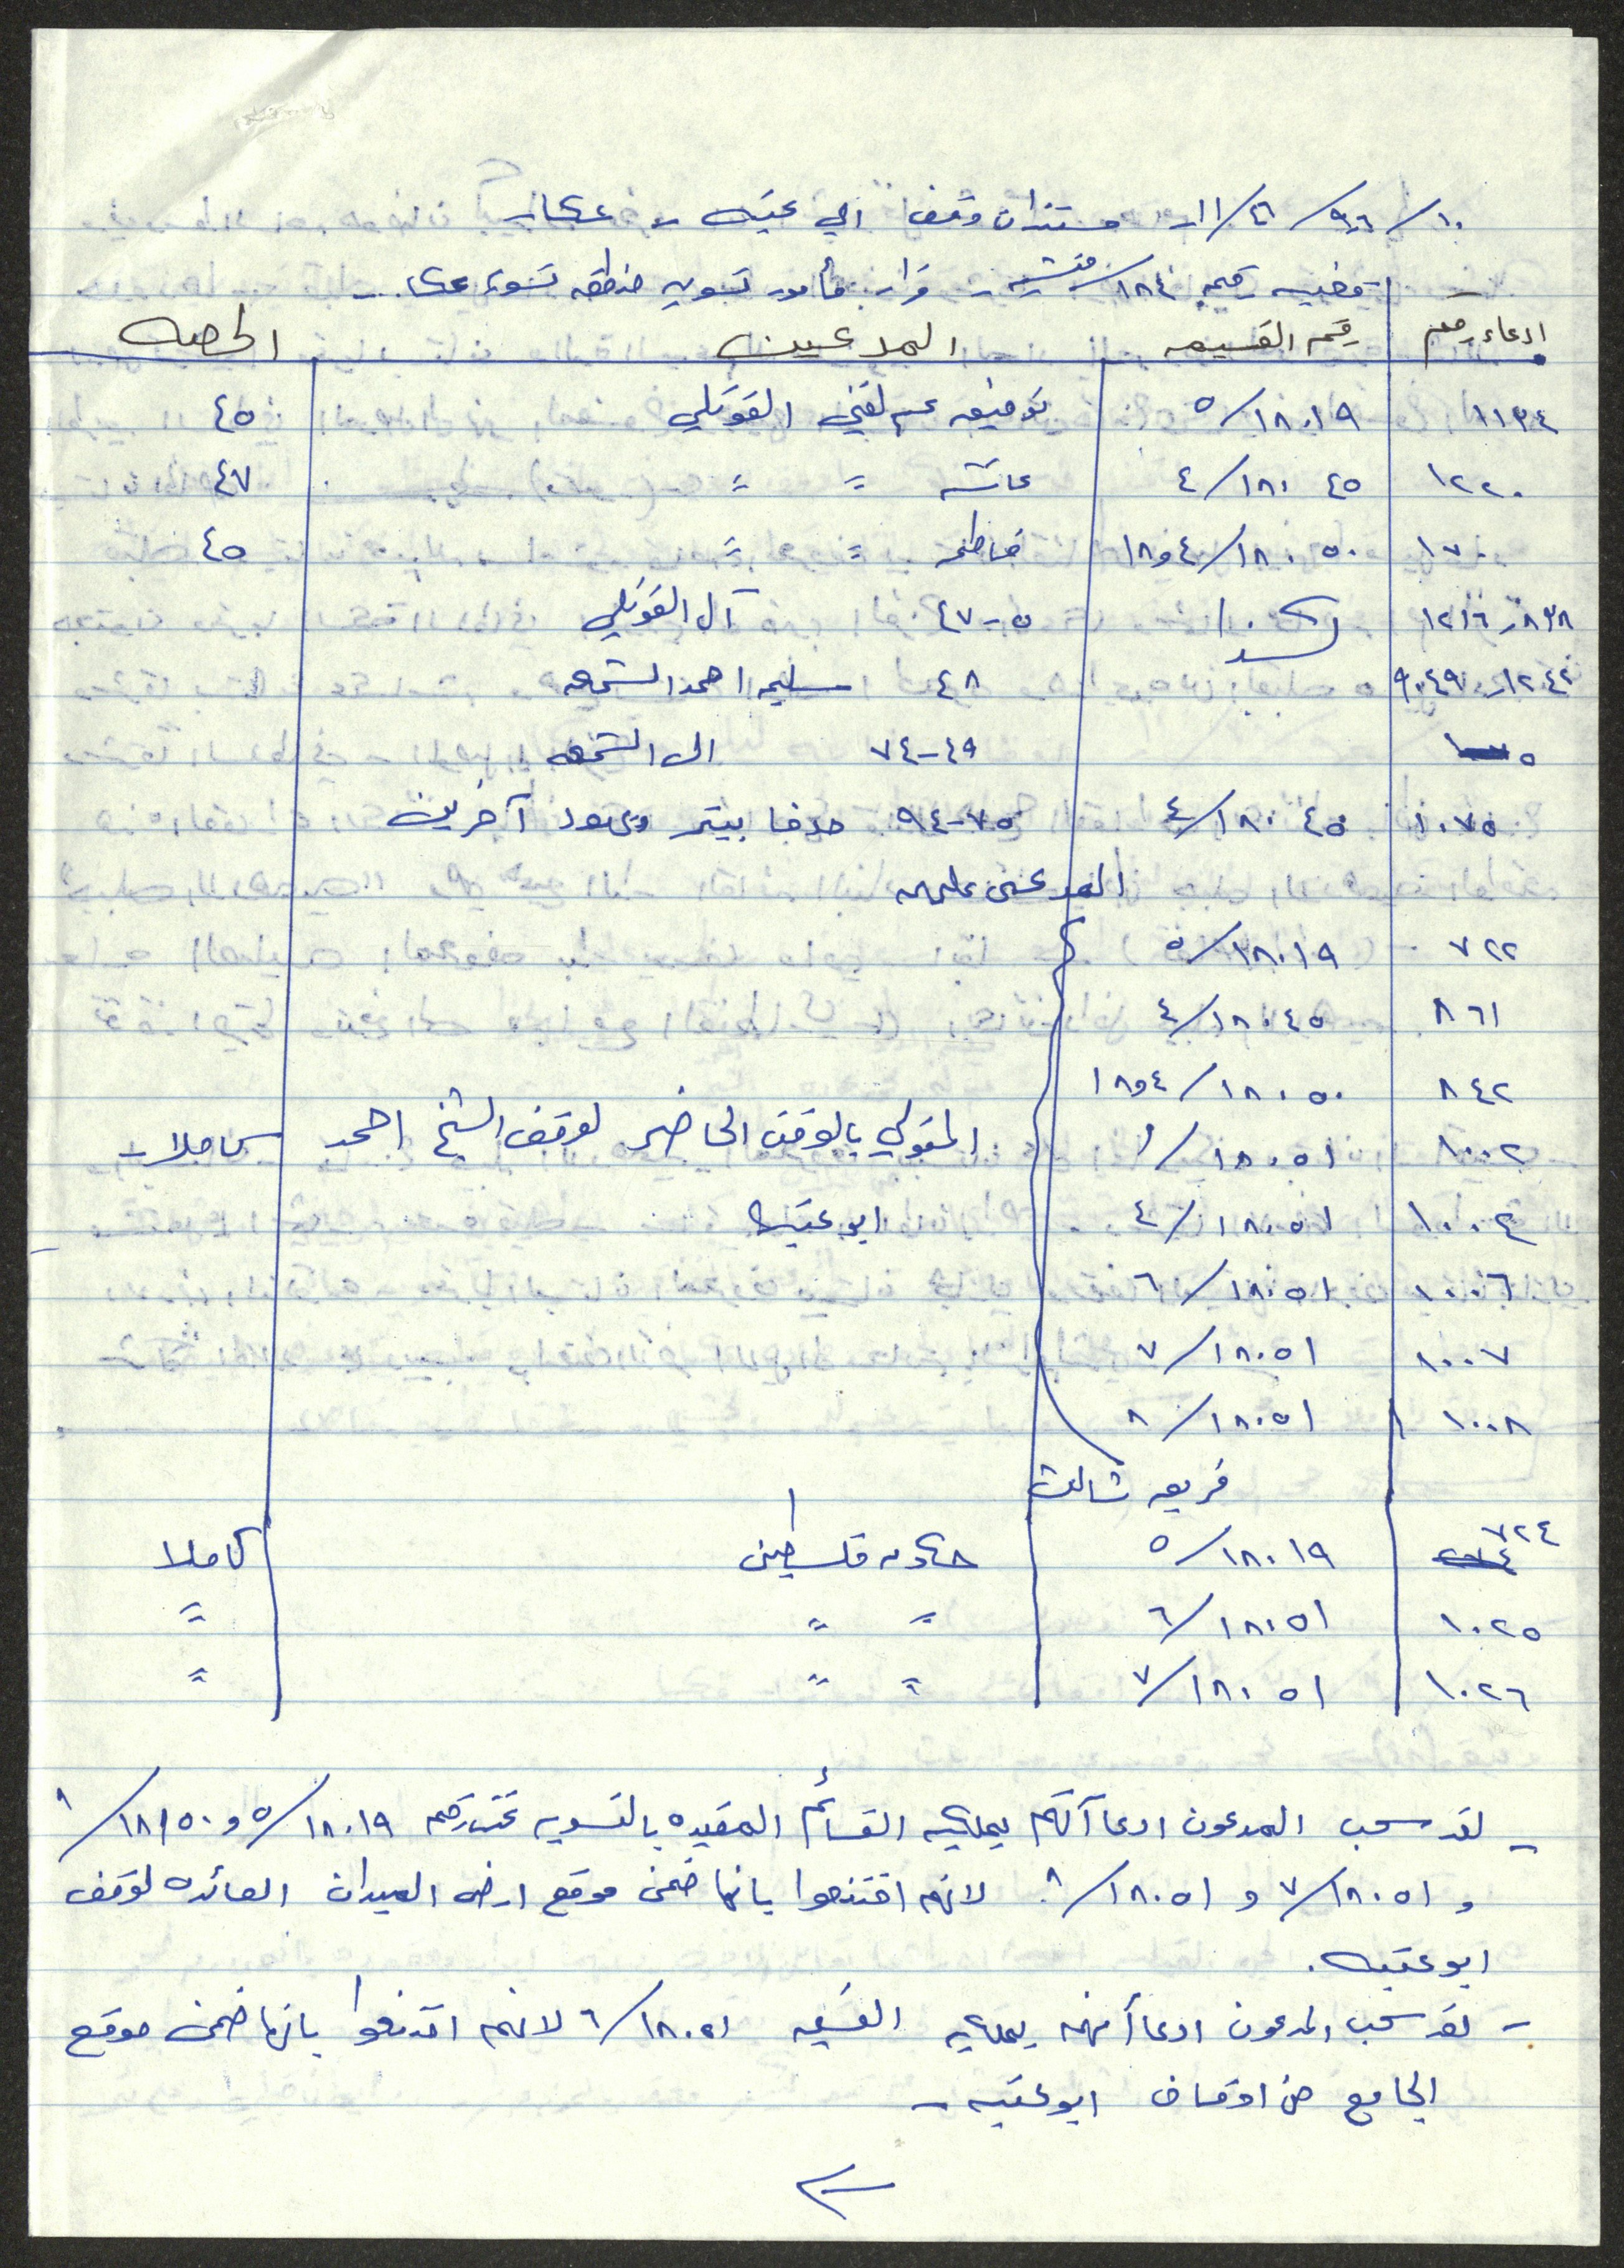 مستندات وقف ابي عتبه - عكا -
قضيه رقم ١٨٤/ - قرار مأمور تسويه منطقه تسوية عكا -
ادعاء رقم رقم القسيمه المدعين الحصه
١١٣٤ ١٨٠١٩/٥ توفيق عبد الغني القوتلي ٤٥
١٢٢٠ ١٨٠٤٥/٤ عائشه = = ٤٧
١٧٠ ١٨٠٥٠/٤و١٨ فاطمه = = ٤٥
١٢١٦ ٥-٤٧ آل القوتلي
١٢٤٢ ٤٨ سليم احمد الشمعه
٤٩-٧٤ ال الشمعه
١٠٧٥ ١٨٠٤٥/٤ ٧٥-٩٤ حوفا بيتر ويهود آخرين
المدعى عليهم
٧٢٢ ١٨٠١٩/٥
٨٦١ ١٨٠٤٥/٤
٨٤٢ ١٨٠٥٠/٤و١٨
١٠٠٢ ١٨٠٥١/ المتولي بالوقت الحاضر لوقف الشيخ احمد كاملا -
١٠٠٤ ١٨٠٥١/٤ ابو عتبه
١٠٠٦ ١٨٠٥١/٦
١٠٠٧ ١٨٠٥١/٧
١٠٠٨ ١٨٠٥١/٨
فريق ثالث
٧٢٤ ١٨٠١٩/٥ حكومه فلسطين كاملا
١٠٢٥ ١٨٠٥١/٦ = = =
١٠٢٦ ١٨٠٥١/٧ = = =
- لقد سحب المدعون ادعاآتهم بملكيه القسائم المقيده بالتسويه تحت رقم ١٨٠١٩/٥ و
و ١٨٠٥١/٧ و ١٨٠٥١/٨. لانهم اقتنعوا بانها ضمن موقع ارض الميدان العائده لوقف
ابو عتبه.
- لقد سحب المدعون ادعاأتهم بملكيه القسيمه ١٨٠٥١/٦ لانهم اقتنعوا بانها ضمن موقع
الجامع من اوقاف ابو عتبه -